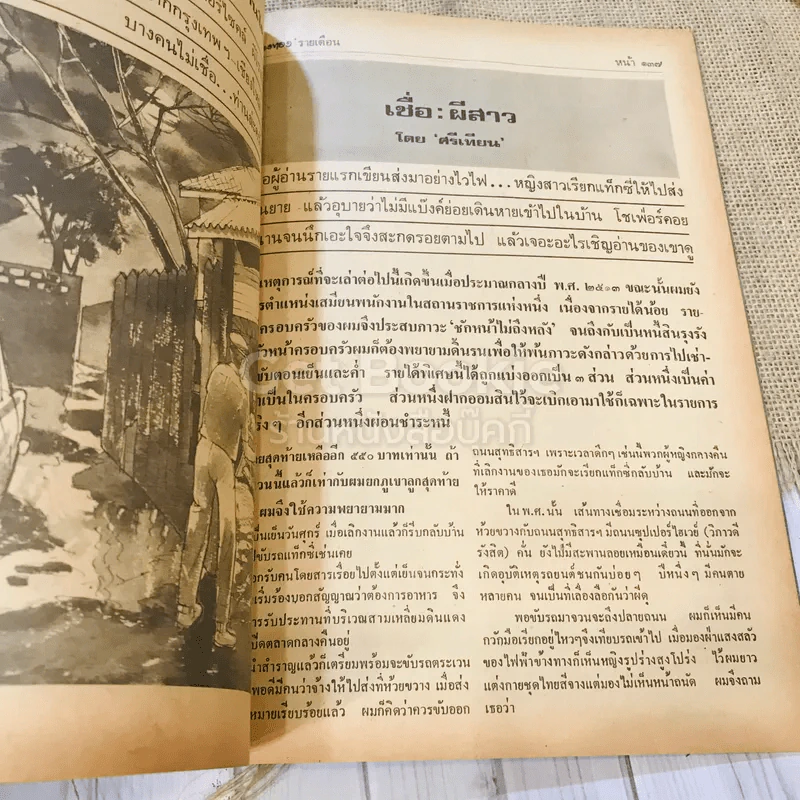 จากกรุงเทพฯ...เชียงใ
บางคนไม่เชื่อ...ท่านล
รายเดือน
หน้า ๑๓๗
เชื่อ : ผีสาว
โดย 'ศรีเทียน'
อผู้อ่านรายแรกเขียนส่งมาอย่างไวไฟ...หญิงสาวเรียกแท็กซี่ให้ไปส่ง
นยาย แล้วอุบายว่าไม่มีแบ๊งค์ย่อยเดินหายเข้าไปในบ้าน โชเฟ่อร์คอย
านจนนึกเอะใจจึงสะกดรอยตามไป แล้วเจอะอะไรเชิญอ่านของเขาดู
เหตุการณ์ที่จะเล่าต่อไปนี้เกิดขึ้นเมื่อประมาณกลางปี พ.ศ. ๒๕๑๓ ขณะนั้นผมยัง
รตำแหน่งเสมียนพนักงานในสถานราชการแห่งหนึ่ง เนื่องจากรายได้น้อย ราย-
ครอบครัวของผมจึงประสบภาวะ 'ชักหน้าไม่ถึงหลัง' จนถึงกับเป็นหนี้สินรุงรัง
ัวหน้าครอบครัวผมก็ต้องพยายามดิ้นรนเพื่อให้พ้นภาวะดังกล่าวด้วยการไปเช่า-
ขับตอนเย็นและค่ำ รายได้พิเศษนี้ได้ถูกแบ่งออกเป็น ๓ ส่วน ส่วนหนึ่งเป็นค่า
าเป็นในครอบครัว ส่วนหนึ่งฝากออมสินไว้จะเบิกเอามาใช้ก็เฉพาะในรายการ
ริง ๆ อีกส่วนหนึ่งผ่อนชำระหนี้
ยสุดท้ายเหลืออีก ๕๕๐ บาทเท่านั้น ถ้า
วนนี้แล้วก็เท่ากับผมยกภูเขาลูกสุดท้าย
ผมจึงใช้ความพยายามมาก
ย็นเย็นวันศุกร์ เมื่อเลิกงานแล้วก็รีบกลับบ้าน
ปขับรถแท็กซี่เช่นเคย
อกรับคนโดยสารเรื่อยไปตั้งแต่เย็นจนกระทั่ง
เริ่มร้องบอกสัญญาณว่าต้องการอาหาร จึง
ารรับประทานที่บริเวณสามเหลี่ยมดินแดง
ปิดตลาดกลางคืนอยู่
นำสำราญแล้วก็เตรียมพร้อมจะขับรถตระเวน
พอดีมีคนว่าจ้างให้ไปส่งที่ห้วยขวาง เมื่อส่ง
หมายเรียบร้อยแล้ว ผมก็คิดว่าควรขับออก
ถนนสุทธิสารฯ เพราะเวลาดึกๆ เช่นนี้พวกผู้หญิงกลางคืน
ที่เลิกงานของเธอมักจะเรียกแท็กซี่กลับบ้าน และมักจะ
ให้ราคาดี
ใน พ.ศ. นั้น เส้นทางเชื่อมระหว่างถนนที่ออกจาก
ห้วยขวางกับถนนสุทธิสารฯ มีถนนซุปเปอร์ไฮเวย์ (วิภาวดี
รังสิต) คั่น ยังไม่มีสะพานลอยเหมือนเดี๋ยวนี้ ที่นั่นมักจะ
เกิดอุบัติเหตุรถยนต์ชนกันบ่อยๆ ปีหนึ่งๆ มีคนตาย
หลายคน จนเป็นที่เลื่องลือกันว่าผีดุ
พอขับรถมาจวนจะถึงปลายถนน ผมก็เห็นมีคน
กวักมือเรียกอยู่ไหวๆจึงเทียบรถเข้าไป เมื่อมองฝ่าแสงสลัว
ของไฟฟ้าข้างทางก็เห็นหญิงรูปร่างสูงโปร่ง ไว้ผมยาว
แต่งกายชุดไทยสีจางแต่มองไม่เห็นหน้าถนัด ผมจึงถาม
เธอว่า
ร้านหนังสือบุ๊คกี้